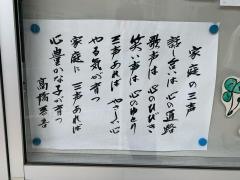 家庭の三声
話し合いは 心の道路
歌声は 心のひびき
笑い声は 心のゆとり
三声あれば やさしい心
やる気が育つ
家庭に 三声あれば
心豊かな子が育つ
高橋